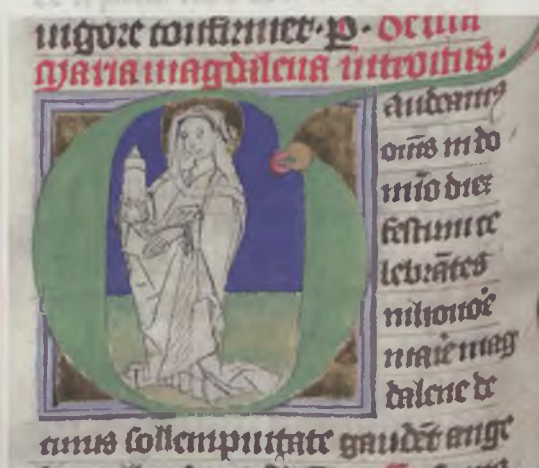 uigore confirmet. P. De scā
Maria magdalena introitus.
Gaudeamꝰ
oms in do
mino diē
festum ce
lebrātes
in honoē
marie mag
dalene de
cuius sollempnitate gaudēt ange